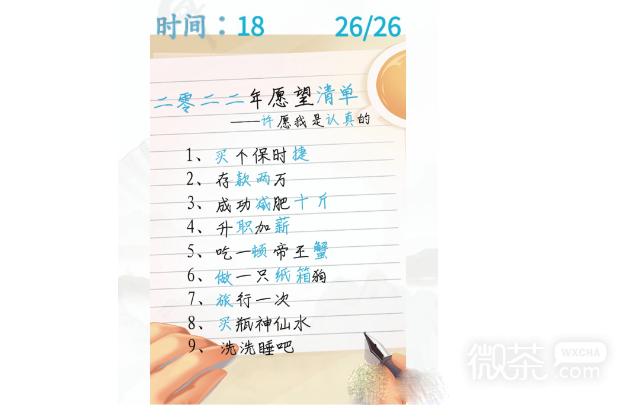 时间：18 26/26
二零二二年愿望清单
——许愿我是认真的
1、买个保时捷
2、存款两万
3、成功减肥十斤
4、升职加薪
5、吃一顿帝王蟹
6、做一只纸箱狗
7、旅行一次
8、买瓶神仙水
9、洗洗睡吧
微茶 WXCHA
.com